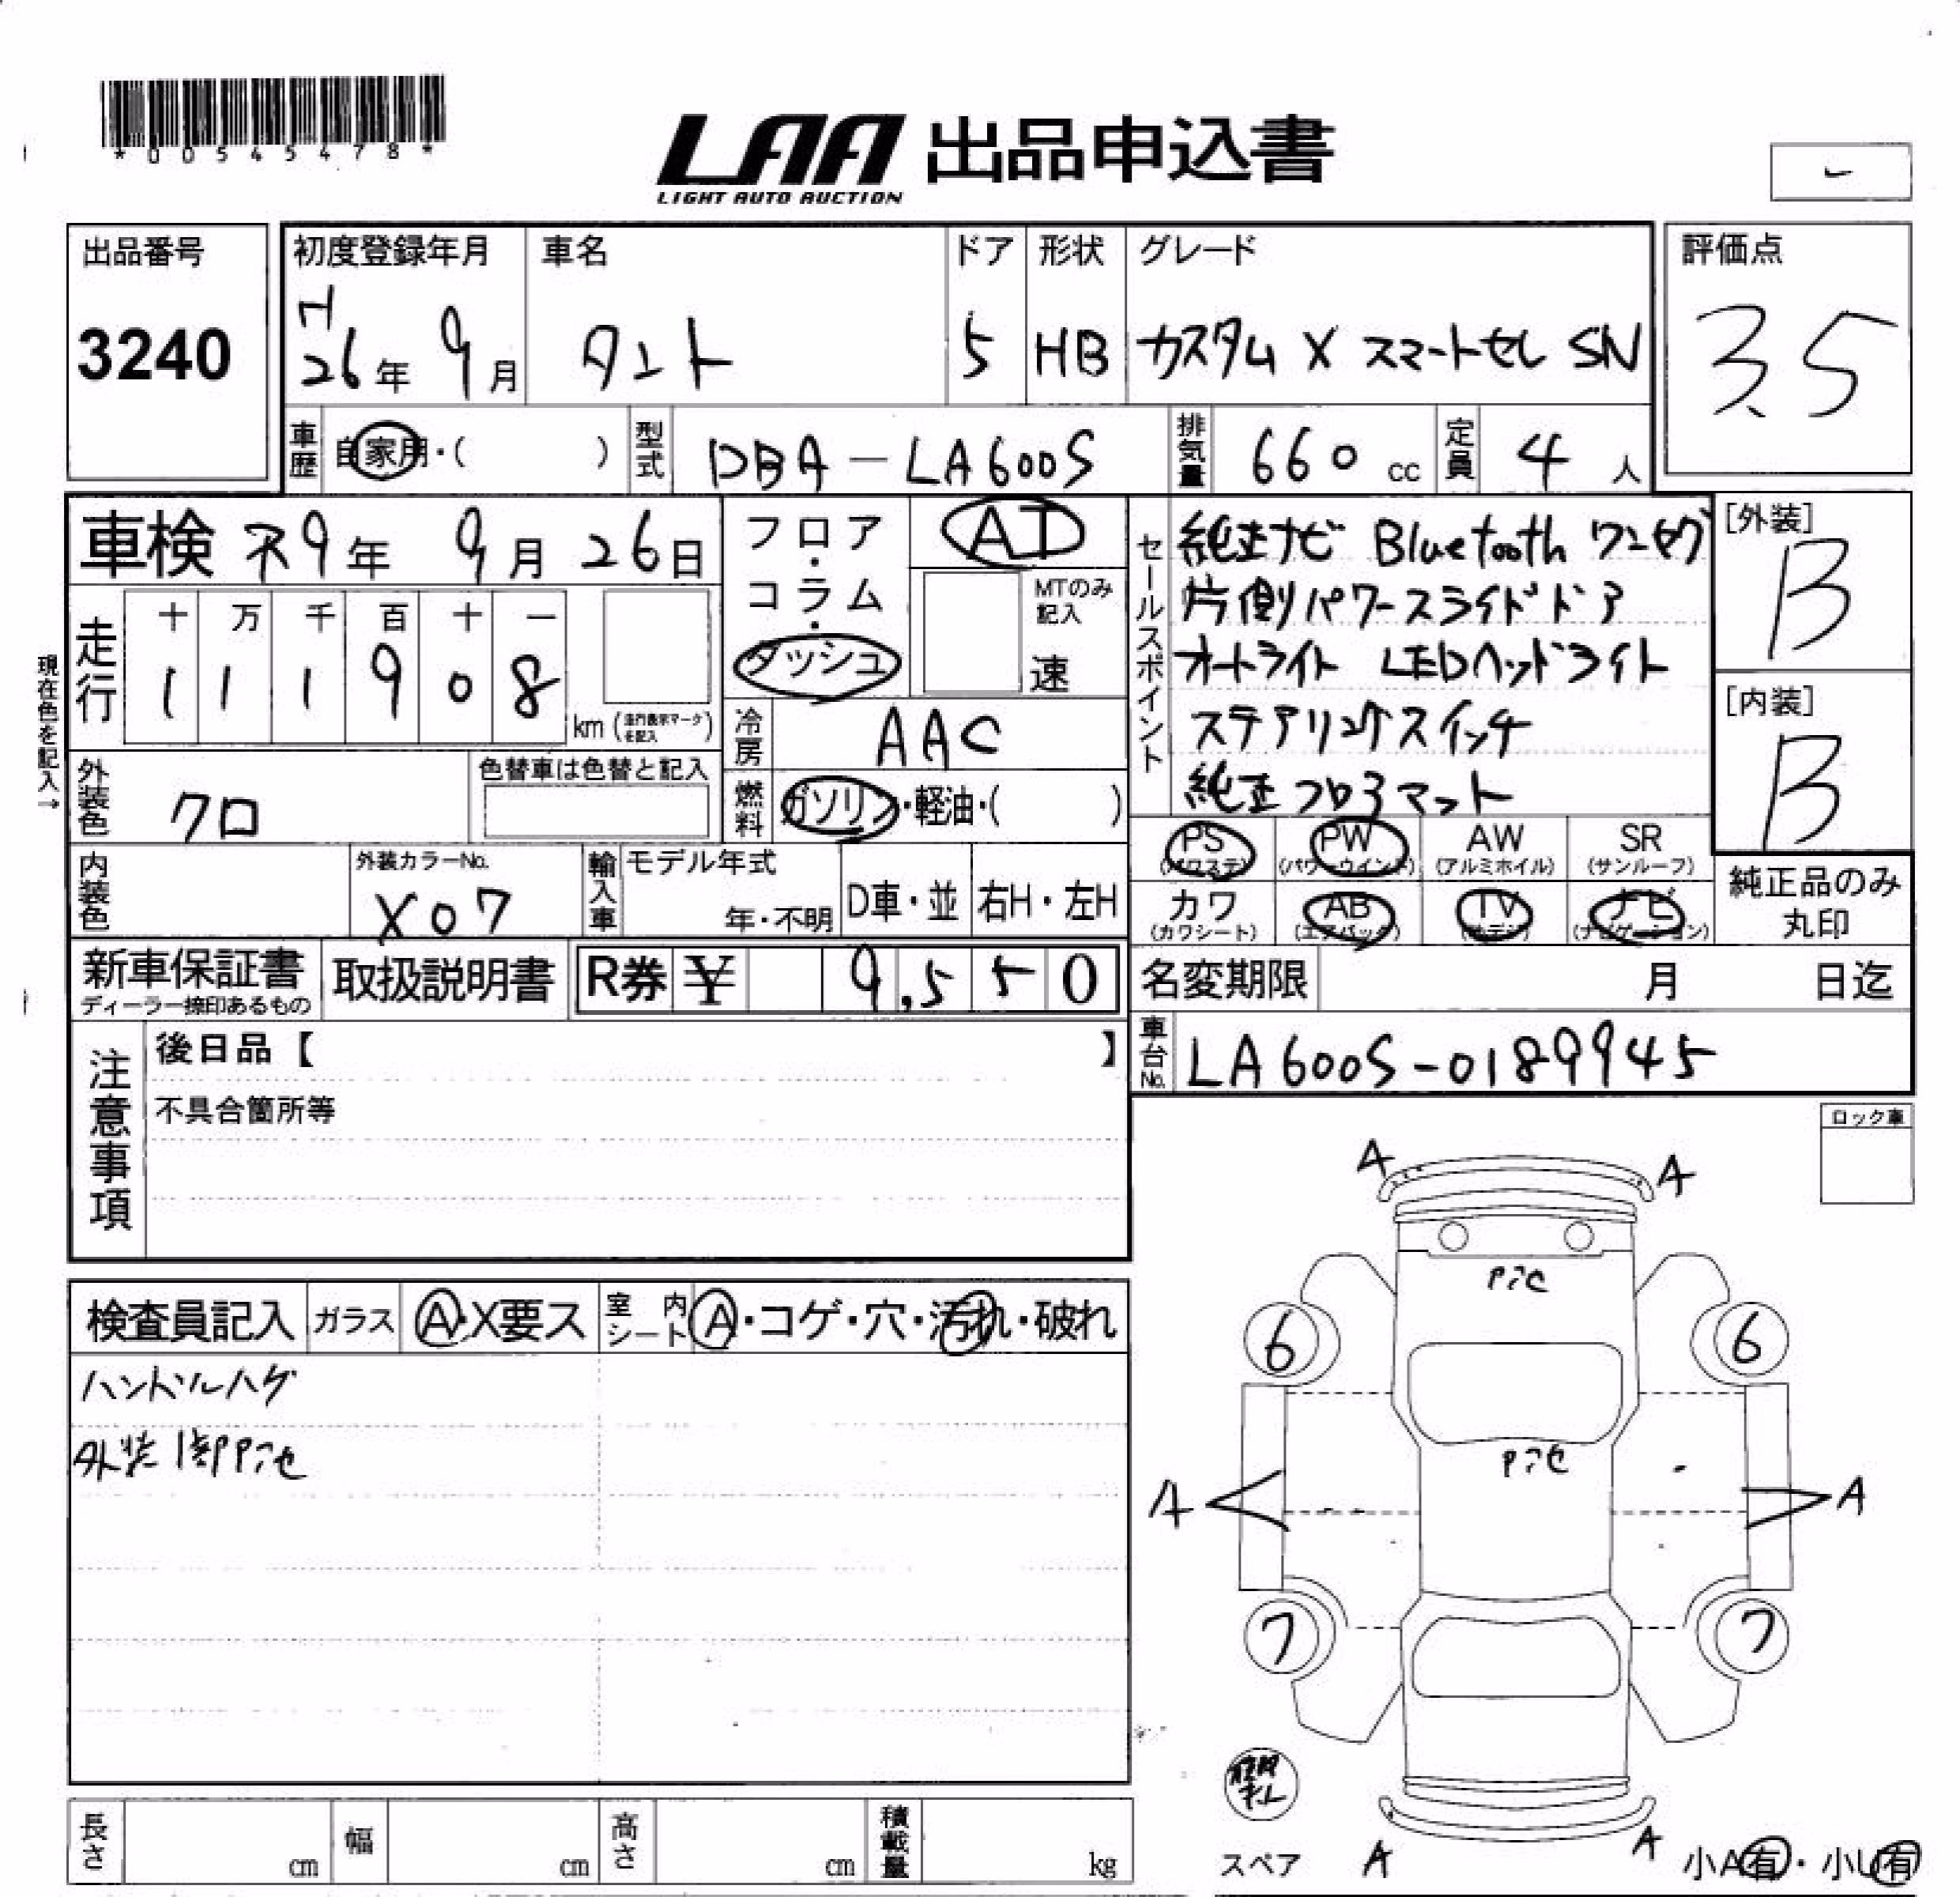 *00545478*
LAA 出品申込書
LIGHT AUTO AUCTION
出品番号
3240
初度登録年月
H
26年 9月
車名
タント
ドア
5
形状
HB
グレード
カスタム X スマートセレ SN
評価点
3.5
車歴
自家用・( )
型式
DBA-LA600S
排気量
660 cc
定員
4 人
車検 R9年 9月 26日
フロア・コラム・ダッシュ
AT
MTのみ記入
速
セールスポイント
純正ナビ Bluetooth ワンセグ
片側パワースライドドア
オートライト LEDヘッドライト
ステアリングスイッチ
純正フロアマット
[外装]
B
[内装]
B
現在色を記入→
走行
十 万 千 百 十 一
1 1 1 9 0 8
km (走行表示マークを記入)
冷房
AAC
外装色
クロ
色替車は色替と記入
燃料
ガソリン・軽油・( )
PS (パワステ)
PW (パワーウインド)
AW (アルミホイル)
SR (サンルーフ)
カワ (カワシート)
AB (エアバック)
TV
ナビ (ナビゲーション)
純正品のみ
丸印
内装色
外装カラーNo.
X07
輸入車
モデル年式
年・不明
D車・並
右H・左H
新車保証書
ディーラー捺印あるもの
取扱説明書
R券 ¥ 9,550
名変期限 月 日迄
車台No.
LA600S-0189945
注意事項
後日品【 】
不具合箇所等
ロック車
検査員記入
ガラス
A・X要ス
室内シート
A・コゲ・穴・汚れ・破れ
ハンドルハゲ
外装1部アセ
A
A
アセ
6
6
アセ
A
A
7
7
スペア
A
A
小A有・小U有
長さ
cm
幅
cm
高さ
cm
積載量
kg